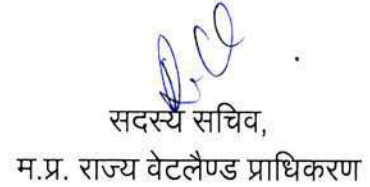 सदस्य सचिव,
म.प्र. राज्य वेटलैण्ड प्राधिकरण